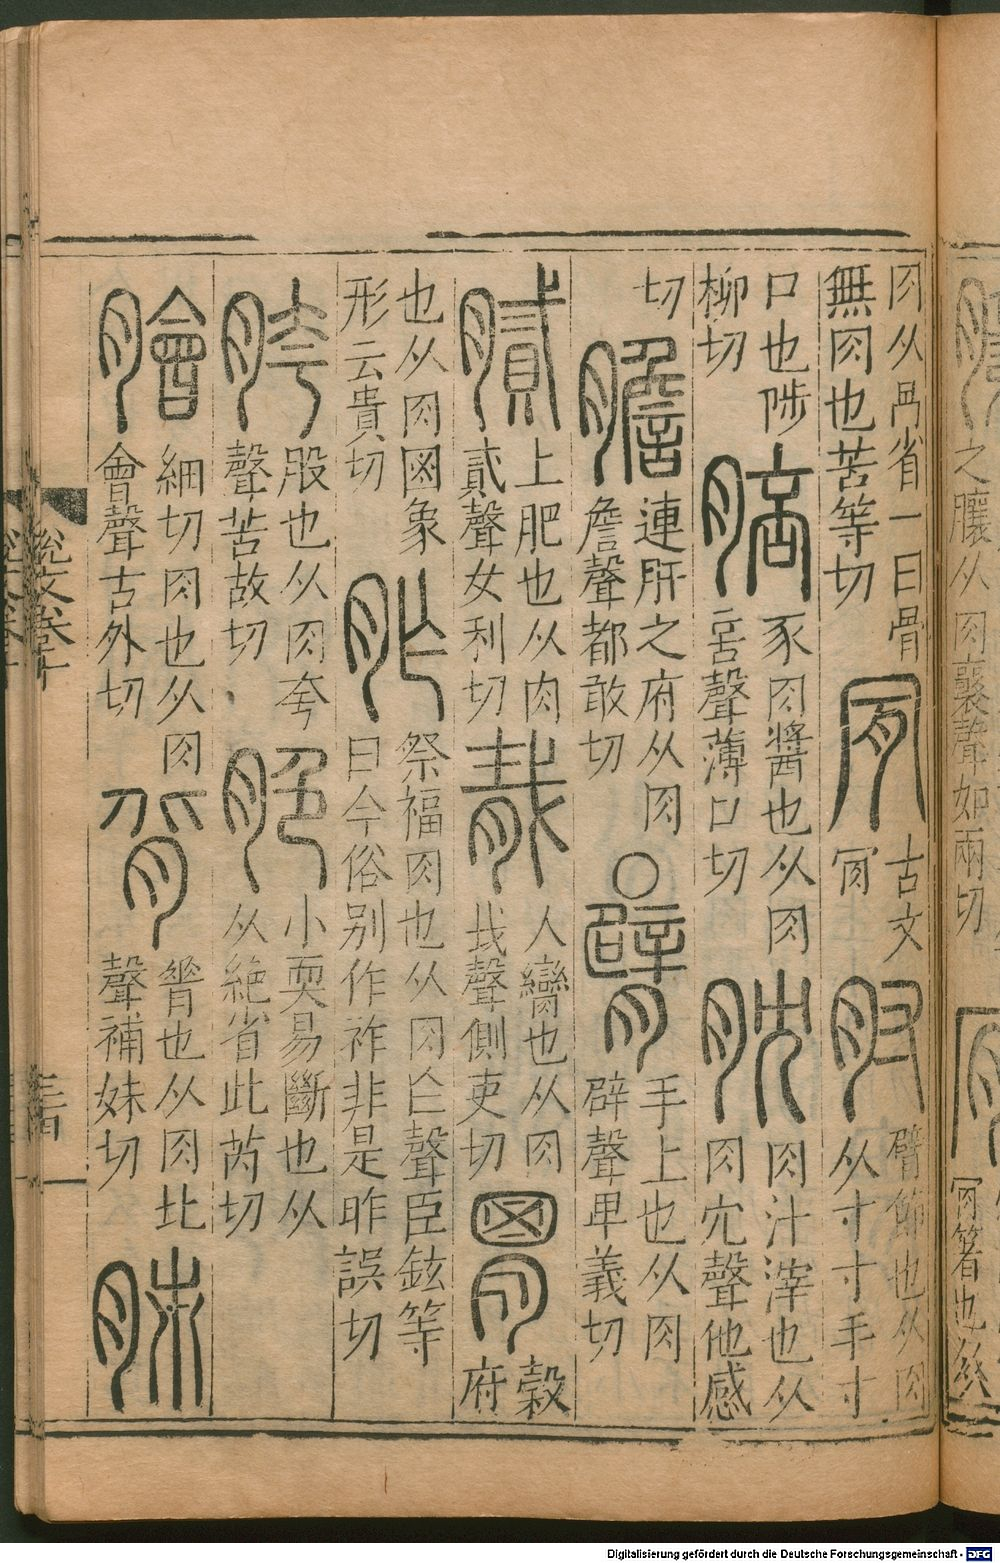 肉从冎省一曰骨
無肉也苦等切
肎
古文
肎
肘
臂節也从肉
从寸寸手寸
口也陟
柳切
䐧
豕肉醬也从肉
咅聲薄口切
肬
肉汁滓也从
肉冘聲他感
切
膽
連肝之府从肉
詹聲都敢切
○
臂
手上也从肉
辟聲卑義切
膩
上肥也从肉
貳聲女利切
胾
人臠也从肉
𢦏聲側吏切
胃
穀
府
也从肉囟象
形云貴切
胙
祭福肉也从肉乍聲臣鉉等
曰今俗別作祚非是昨誤切
胯
股也从肉夸
聲苦故切
脃
小耎易斷也从
从絶省此芮切
膾
細切肉也从肉
會聲古外切
背
脊也从肉北
聲補妹切
肺
說文卷十
之臟从肉襄聲如兩切
肎箸也
Digitalisierung gefördert durch die Deutsche Forschungsgemeinschaft - DFG